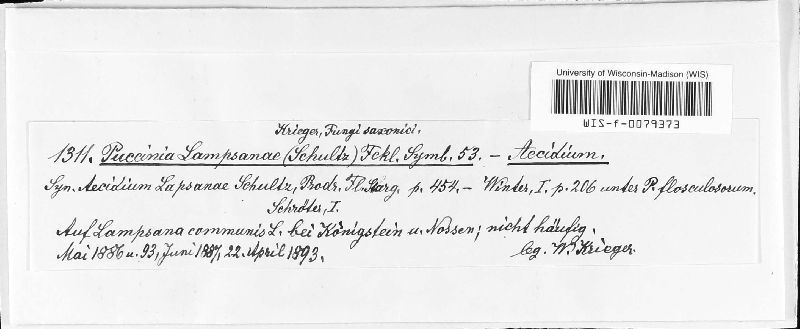 University of Wisconsin-Madison (WIS)
WIS-f-0079373
Krieger, Fungi saxonici.
1311. Puccinia Lampsanae (Schultz) Fckl. Symb. 53. – Aecidium.
Syn. Aecidium Lapsanae Schultz, Prodr. Fl. Starg. p. 454. – Winter, I. p. 206 unter P. flosculosorum.
Schröter, I.
Auf Lampsana communis L. bei Königstein u. Nossen; nicht häufig.
Mai 1886 u. 93, Juni 1887, 22. April 1893. leg. W. Krieger.